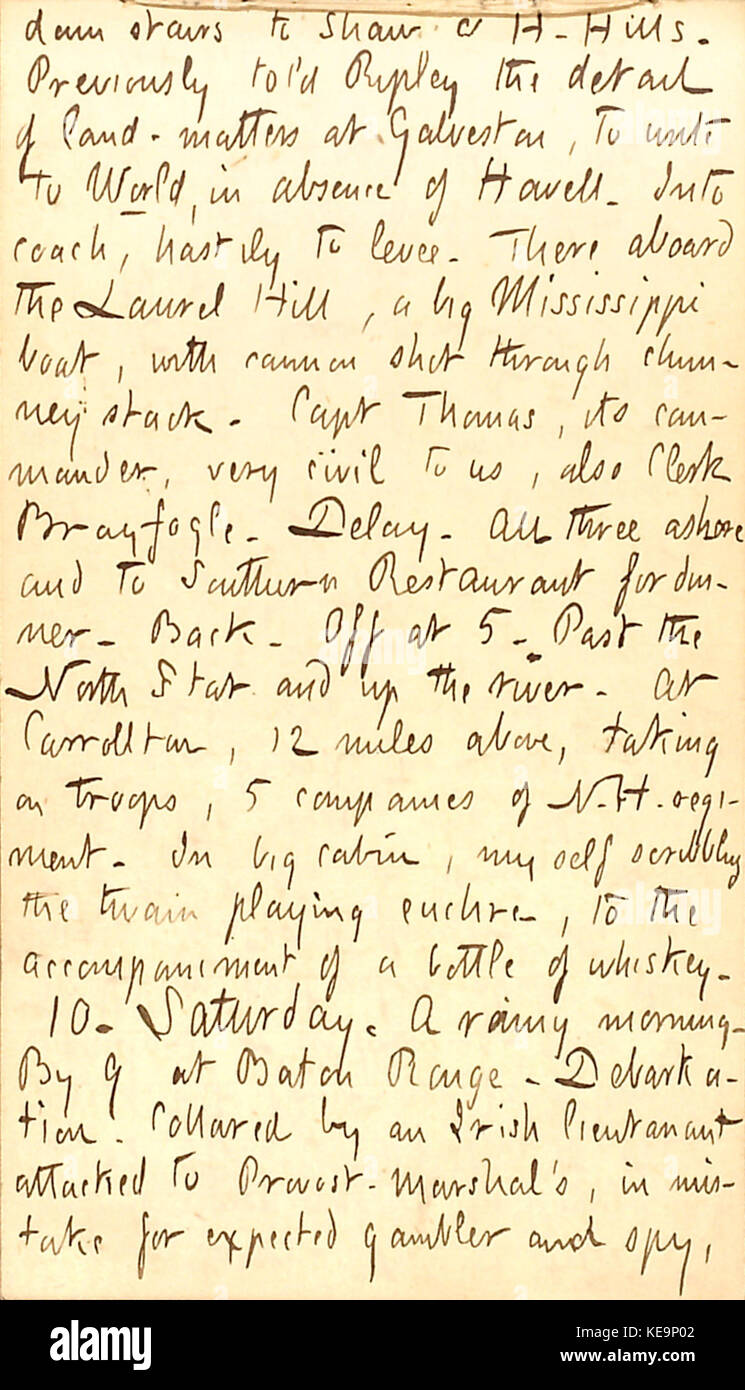 down stairs to Shaw & H. Hills.
Previously told Ripley the detail
of land-matters at Galveston, to write
to World, in absence of Havell. Into
coach, hastily to levee. There aboard
the Laurel Hill, a big Mississippi
boat, with cannon shot through chim-
ney stack. Capt Thomas, its com-
mander, very civil to us, also Clerk
Brayfogle. Delay. All three ashore
and to Southern Restaurant for din-
ner. Back. Off at 5. Past the
North Star and up the river. At
Carrollton, 12 miles above, taking
on troops, 5 companies of N.H. regi-
ment. In big cabin, myself scribbling
the twain playing euchre, to the
accompaniment of a bottle of whiskey.
10. Saturday. A rainy morning.
By 9 at Baton Rouge. Debarka-
tion. Collared by an Irish lieutanant
attached to Provost-Marshal's, in mis-
take for expected gambler and spy,
alamy
Image ID: KE9P02
www.alamy.com